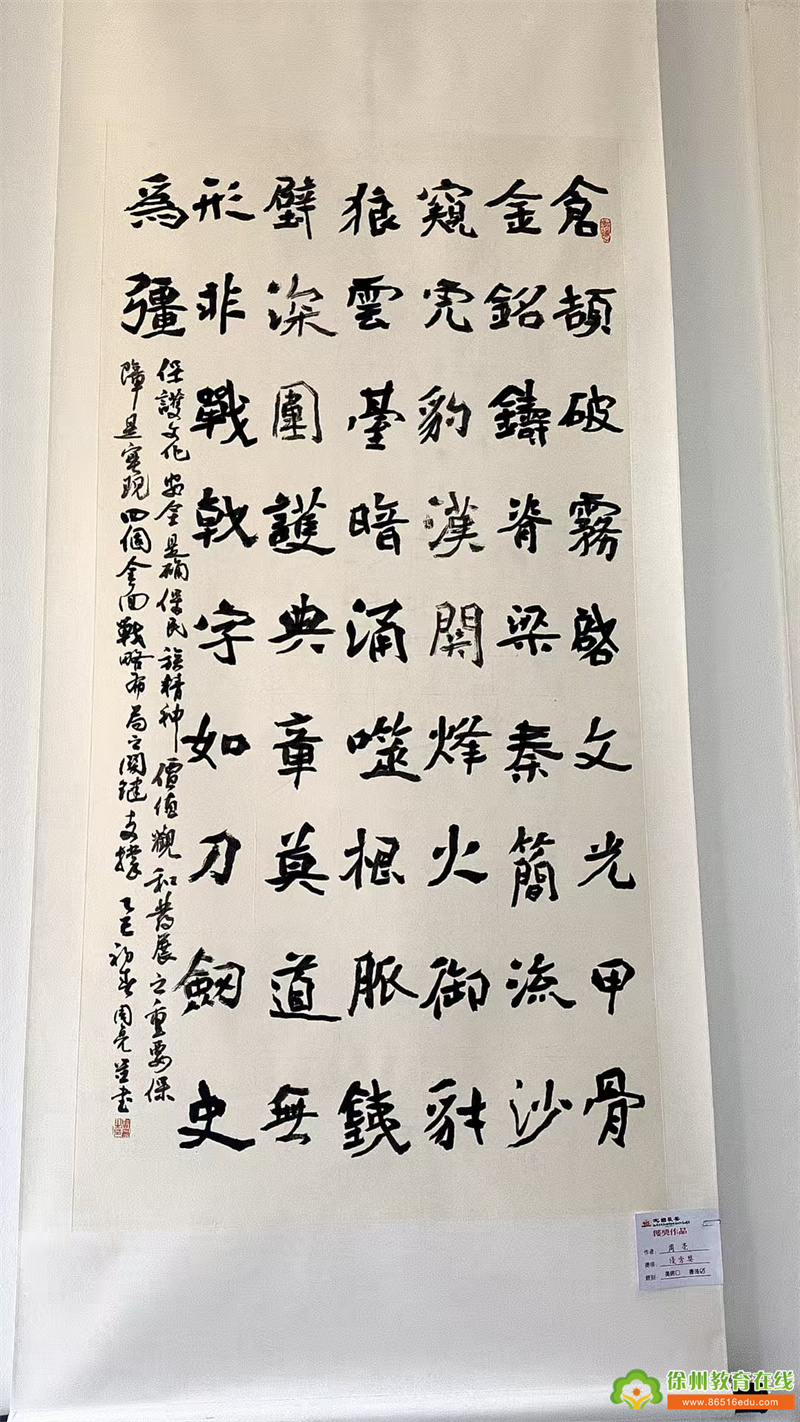 倉頡破霧啓文光甲骨
金銘鑄脊梁秦簡流沙
窺虎豹漢關烽火御豺
狼雲臺暗涌噬根脈鐵
壁深圍護典章莫道無
形非戰戟字如刀劍史
為彊
保護文化安全是确保民族精神價值觀和發展之重要保
障是實現四個全面戰略布局之関鍵支撑乙巳初春周亮並書
获奖作品
作者: 周亮
美術□ 書法☑
徐州教育在线
www.86516edu.com